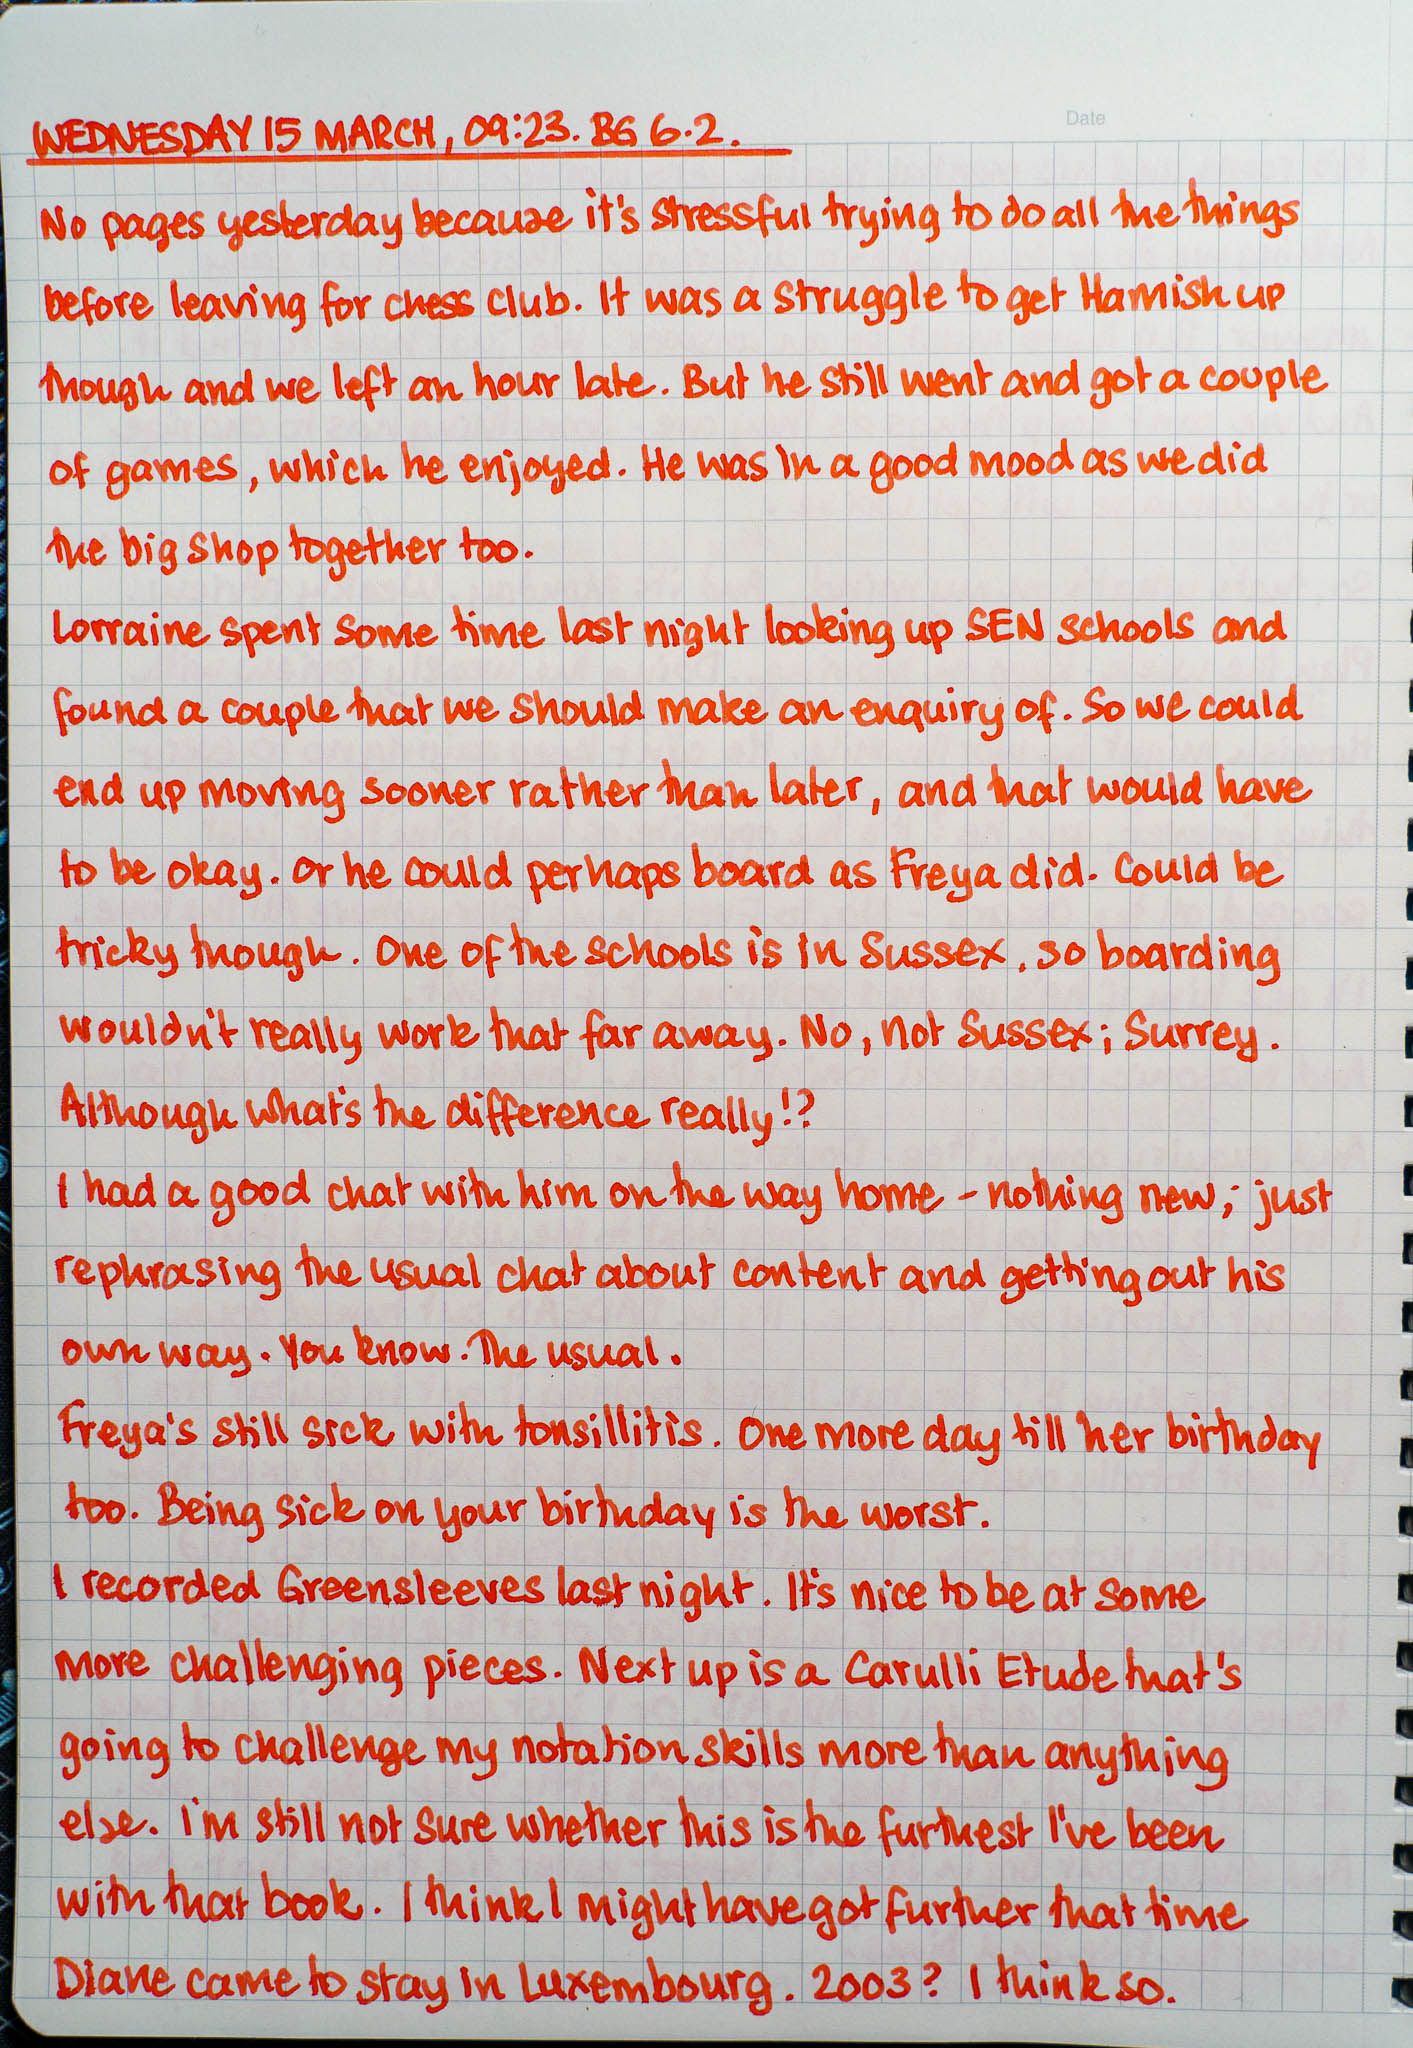 Date
WEDNESDAY 15 MARCH, 09:23. BG 6.2.
No pages yesterday because it's stressful trying to do all the things
before leaving for chess club. It was a struggle to get Hamish up
though and we left an hour late. But he still went and got a couple
of games, which he enjoyed. He was in a good mood as we did
the big shop together too.
Lorraine spent some time last night looking up SEN schools and
found a couple that we should make an enquiry of. So we could
end up moving sooner rather than later, and that would have
to be okay. Or he could perhaps board as Freya did. Could be
tricky though. One of the schools is in Sussex, so boarding
wouldn't really work that far away. No, not Sussex; Surrey.
Although what's the difference really!?
I had a good chat with him on the way home - nothing new; just
rephrasing the usual chat about content and getting out his
own way. You know. The usual.
Freya's still sick with tonsillitis. One more day till her birthday
too. Being sick on your birthday is the worst.
I recorded Greensleeves last night. It's nice to be at some
more challenging pieces. Next up is a Carulli Etude that's
going to challenge my notation skills more than anything
else. I'm still not sure whether this is the furthest I've been
with that book. I think I might have got further that time
Diane came to stay in Luxembourg. 2003? I think so.